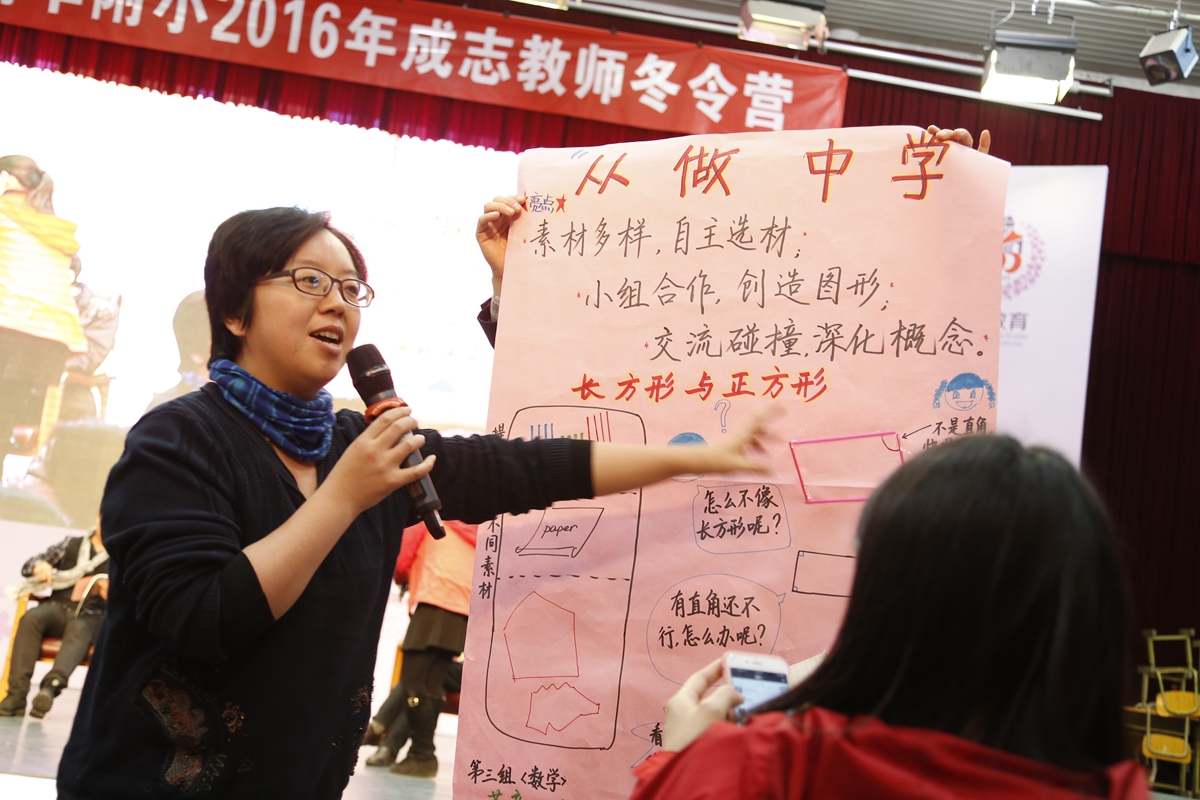 附小2016年成志教师冬令营
从做中学
亮点
素材多样,自主选材;
小组合作,创造图形;
交流碰撞,深化概念。
长方形与正方形
?
不是直角
不同素材
paper
怎么不像
长方形呢?
有直角还不
行,怎么办呢?
看
第三组<数学>
教育